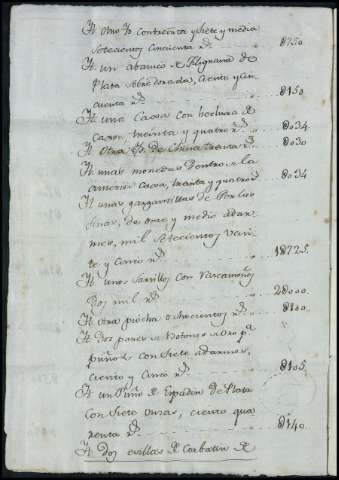 It otro Yd. con treinta y siete y media
setecientos cincuenta rs. 8750.
It un abanico de filigrana de
Plata sobredorada, ciento y cin
cuenta rs. 8150.
It una Caxa con hechura de
Caxon, treinta y quatro rs. 8034.
It otra Yd. de China treinta rs. 8030
It unas monedas dentro de la
anterior Caxa, treinta y quatro rs. 8034
It unas gargantillas de Perlas
finas, de onze y medio adar
mes, mil setecientos vein
te y cinco rs. 18725.
It unos Sarcillos con
Dos mil rs. 28000.
It otra piocha
It Dos pares de Botones de oro pa.
puños con siete adarmes,
ciento y cinco rs. 8105.
It un Puño de Espadin de Plata
con siete onzas, ciento qua
renta rs. 8140.
It dos evillas de Corbatin de